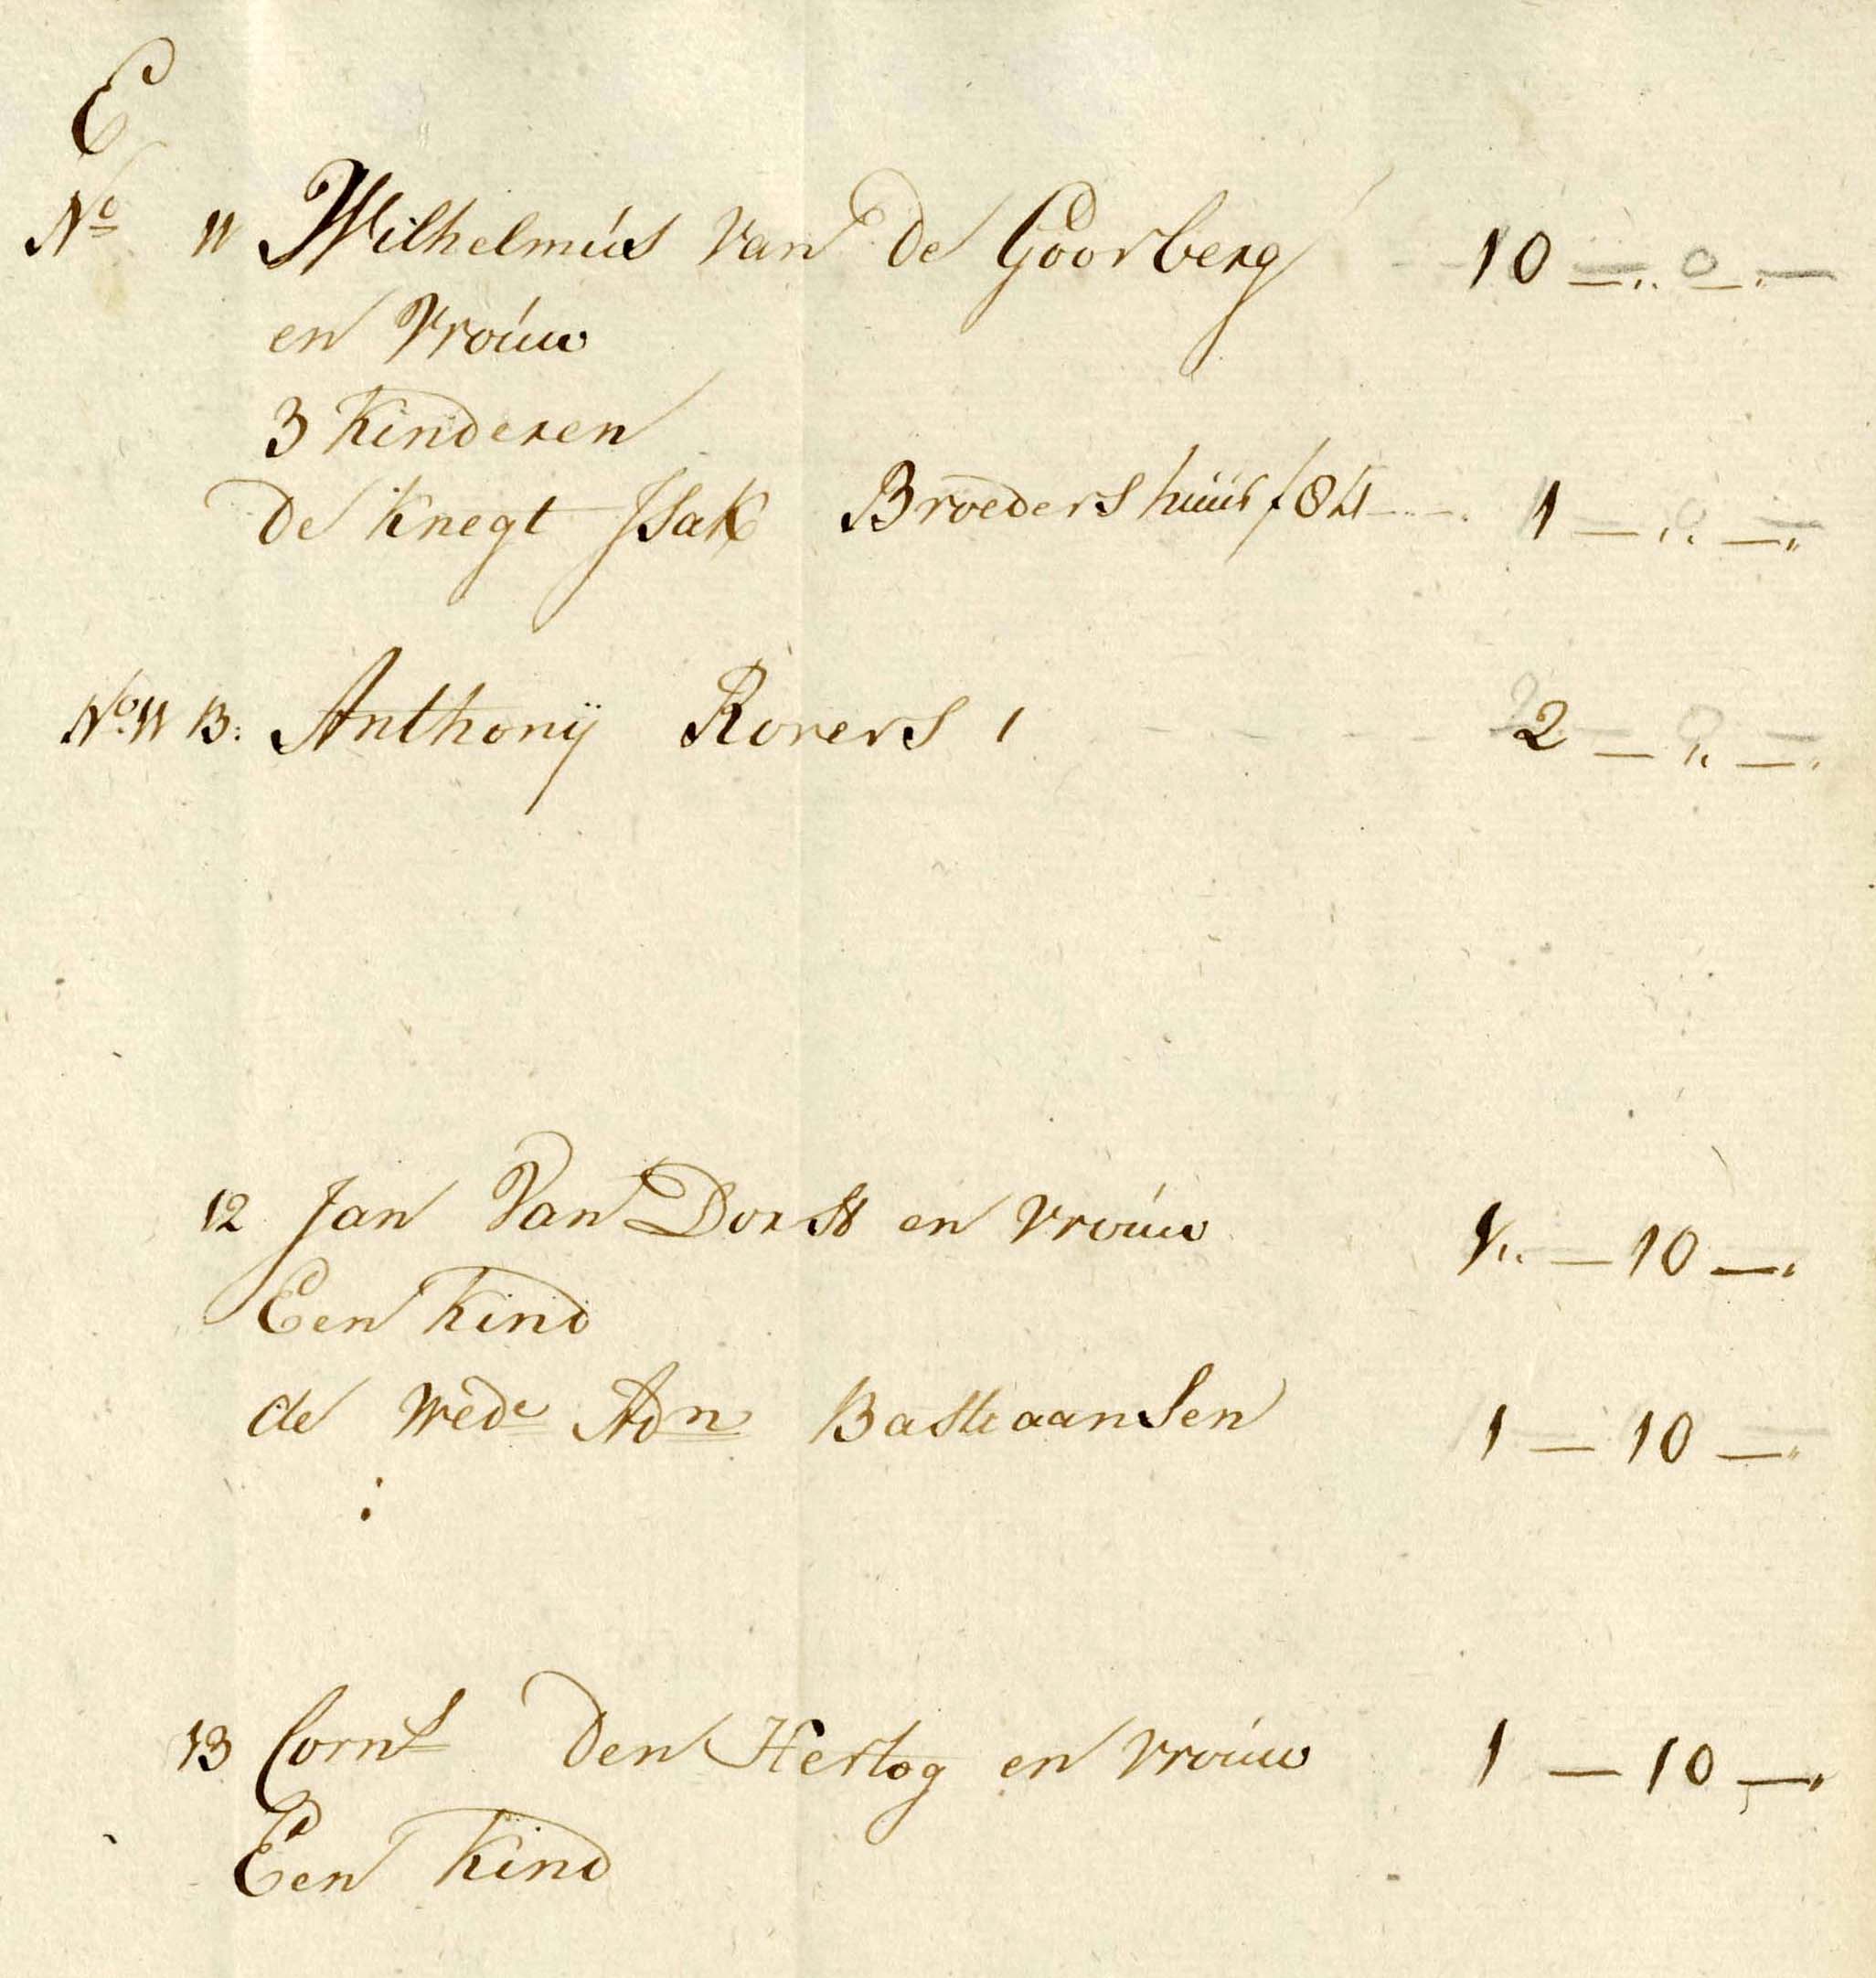 E
No 11 Wilhelmús Van De Goorberg 10 — „ 0 — „ —
en Vroúw
3 Kinderen
De Knegt Jsak Broeders húús f84 1 — „ — „
No 11 B: Anthonij Rovers 1 2 — „ — „
12 Jan Van Dorst en Vroúw „ — 10 — „
Een Kind
de Wede Adn Bastiaansen 1 — 10 — „
13 Corns Den Hertog en Vroúw 1 — 10 — „
Een Kind